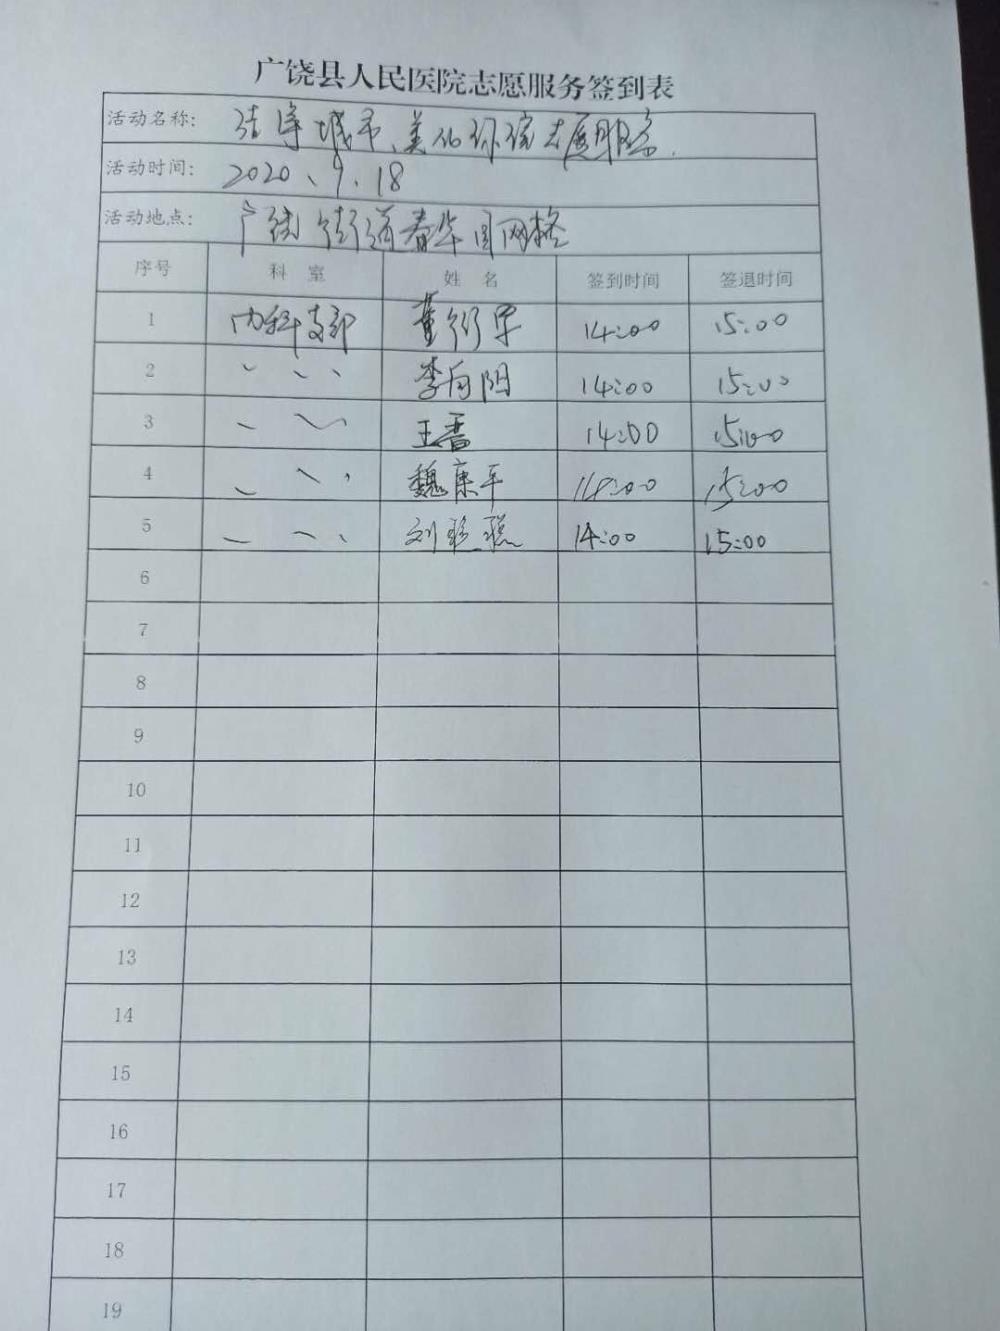 广饶县人民医院志愿服务签到表
活动名称: 洁净城市、美化环境志愿服务.
活动时间: 2020、9、18
活动地点: 广饶街道春华园网格
序号 科 室 姓 名 签到时间 签退时间
1 内科支部 董衍军 14:00 15:00
2 、、、 李向阳 14:00 15:00
3 王 14:00 15:00
4 魏康平 14:00 15:00
5 刘聪 14:00 15:00
6
7
8
9
10
11
12
13
14
15
16
17
18
19